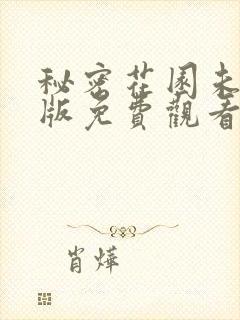 秘密花園未
版免費觀看
肖燁